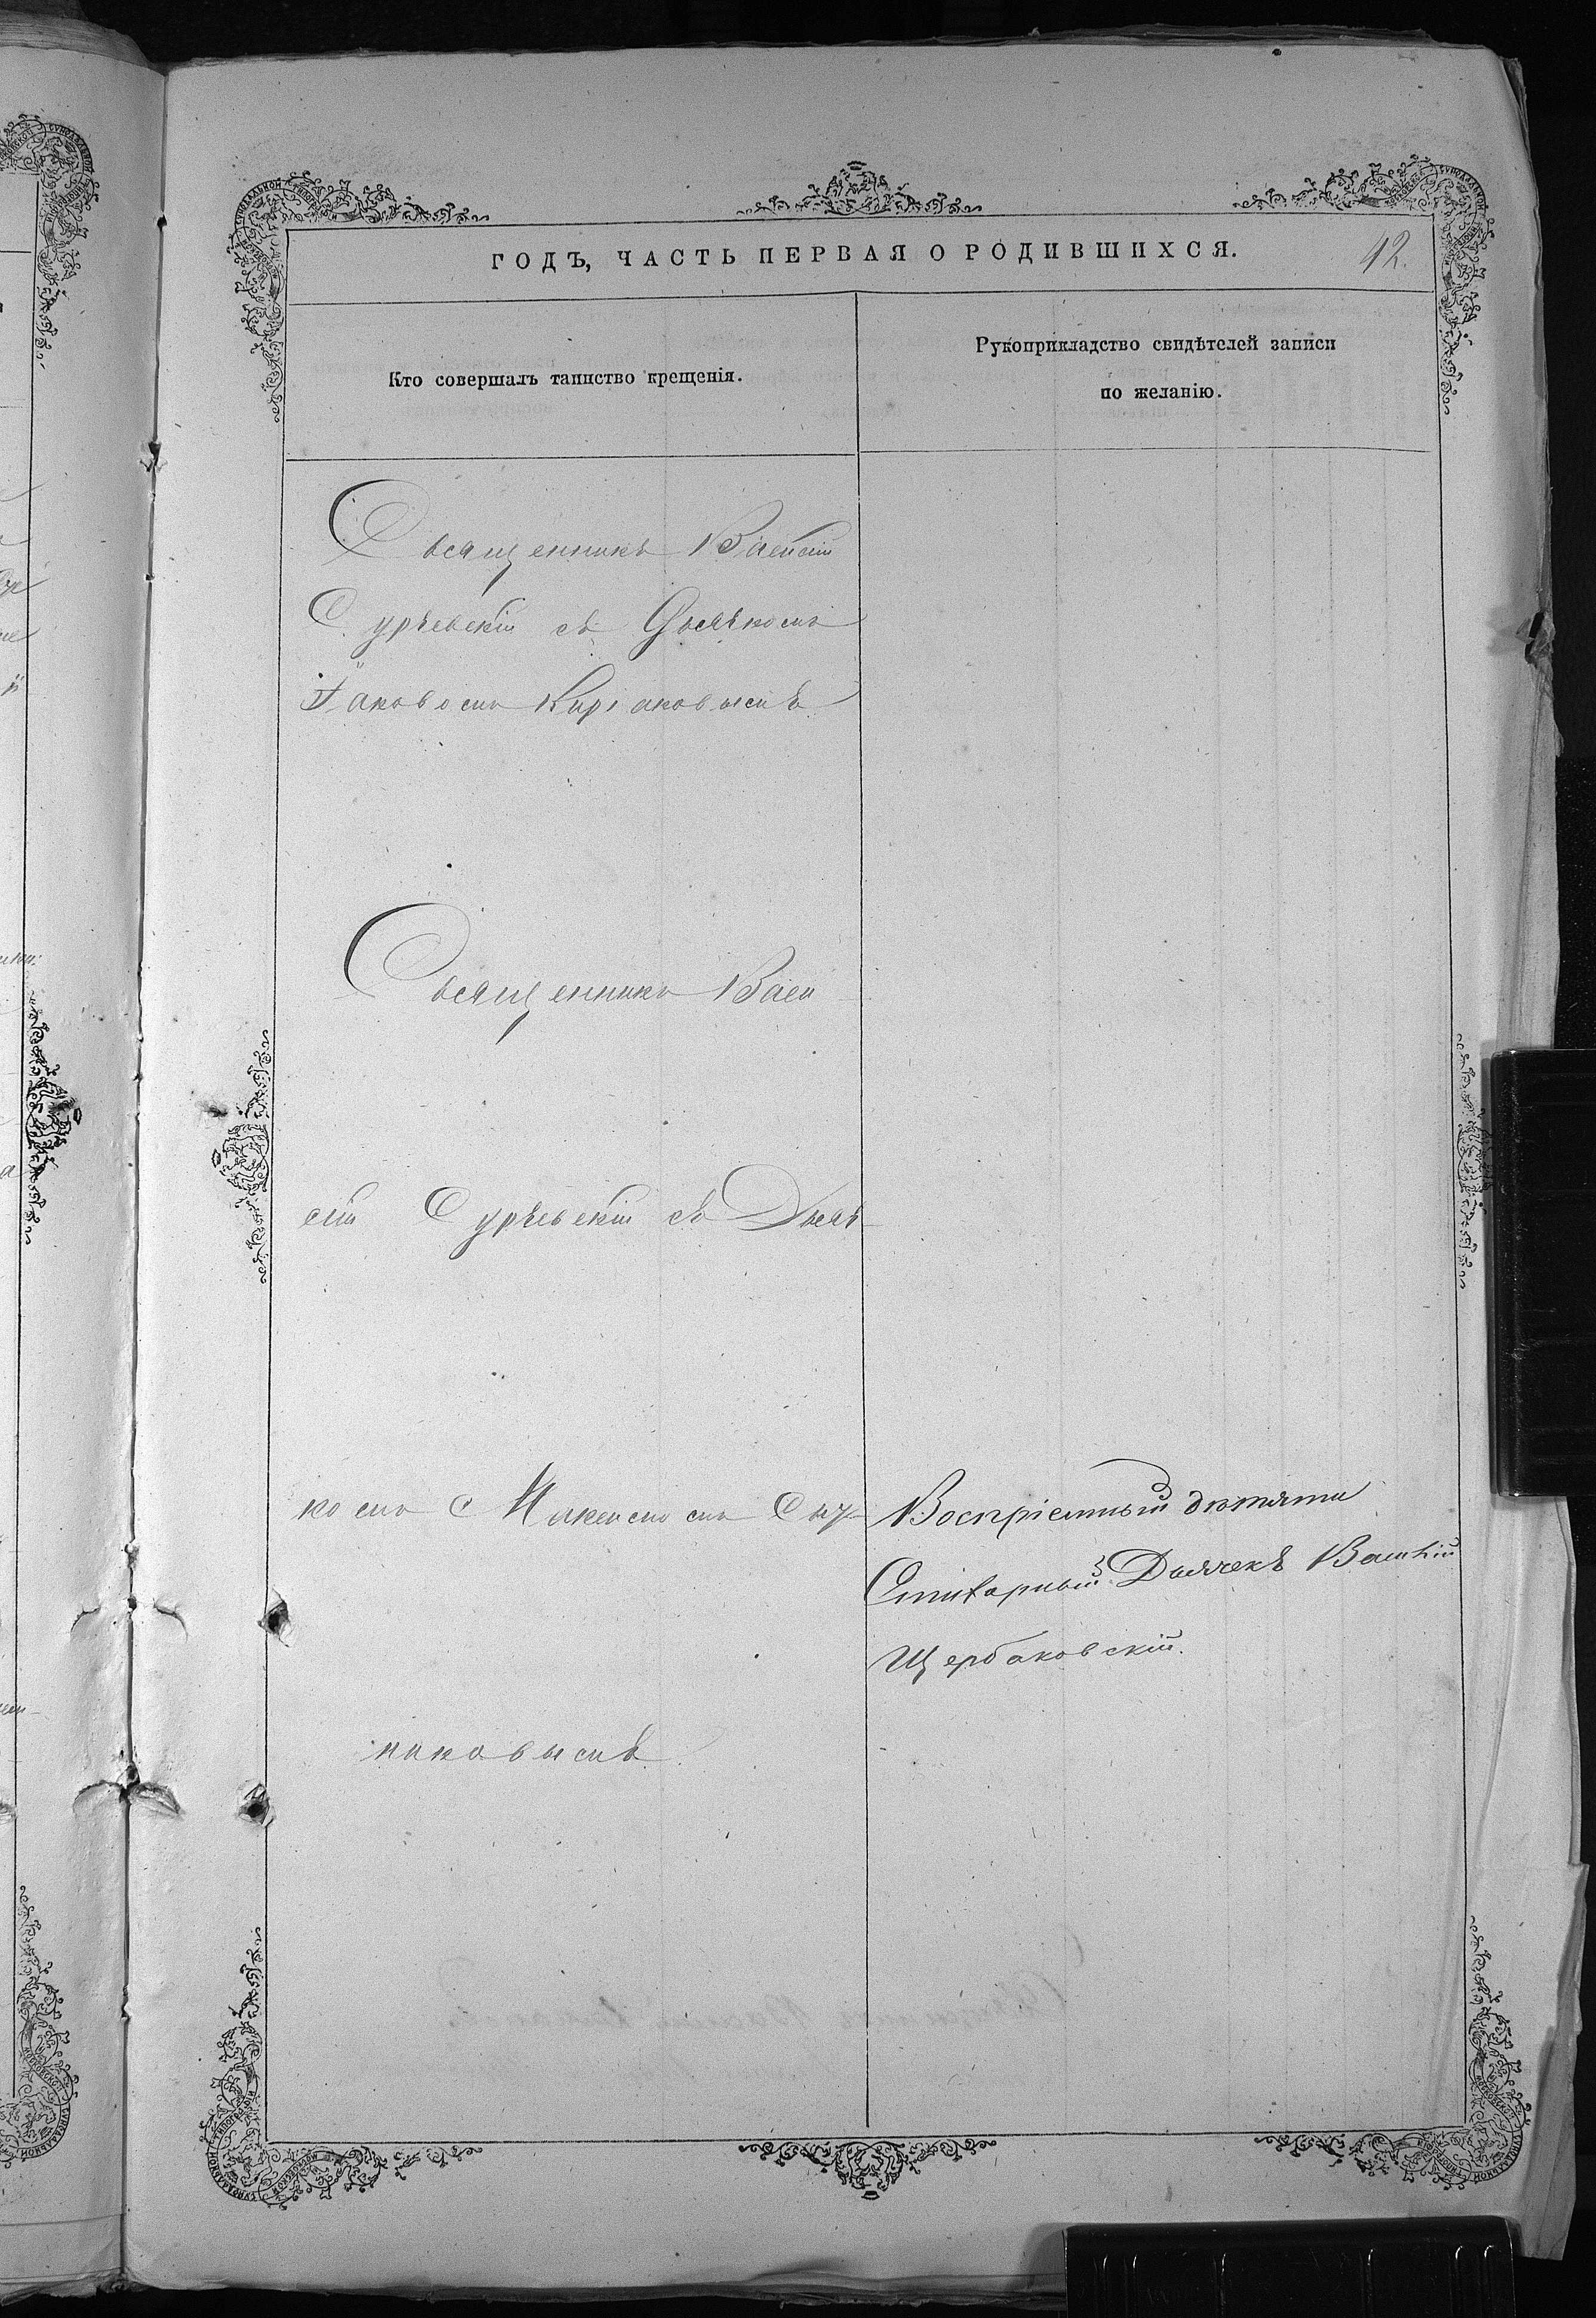 ГОДЪ, ЧАСТЬ ПЕРВАЯ О РОДИВШИХСЯ.
42.
Кто совершалъ таинство крещенія.
Рукоприкладство свидѣтелей записи
по желанію.
Священникъ Василій
Сурѣевскій съ Дьячкомъ
Іаковомъ Киріаковымъ
Священникъ Васи
лій Сурѣевскій съ Дьяч
комъ
Воспріемный дѣтяти
Дьячекъ
Щербаковскій.
наковымъ